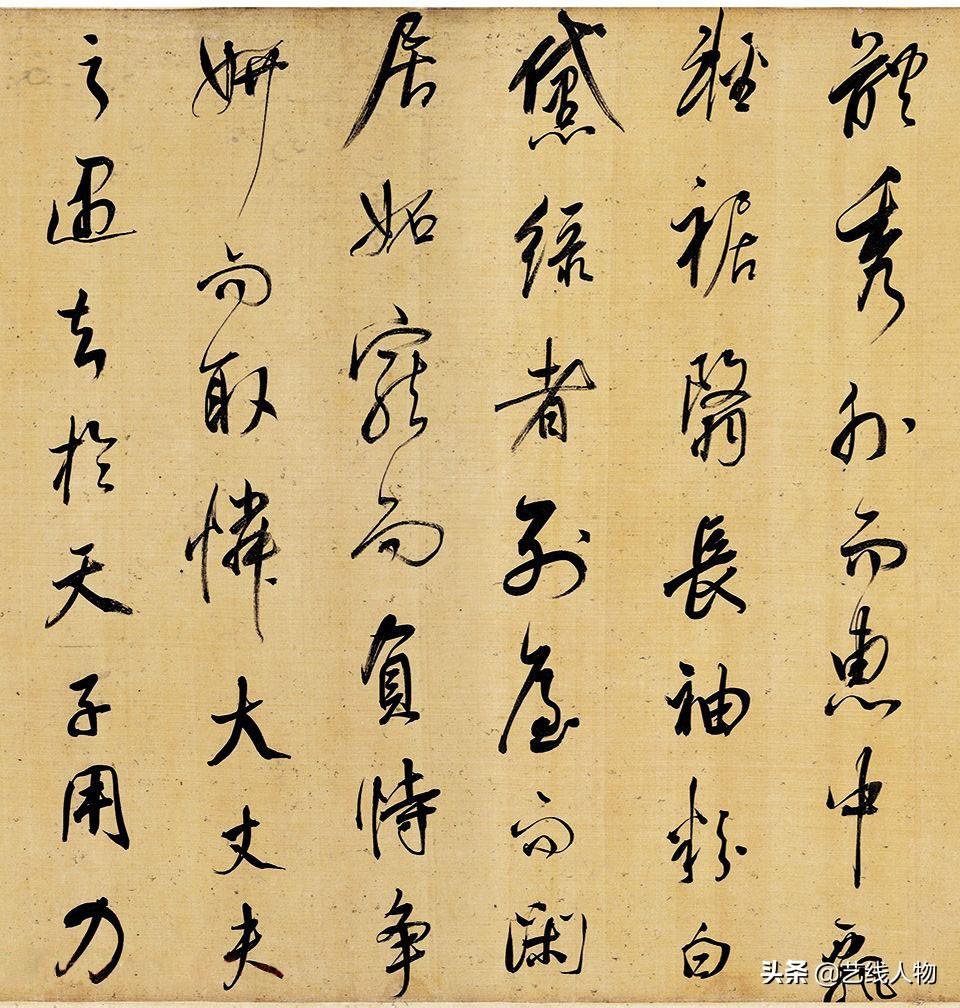 體秀外而惠中飄
輕裾翳長袖粉白
黛綠者列屋而閑
居妬寵而負恃爭
妍而取憐大丈夫
之遇知於天子用力
头条 @艺线人物